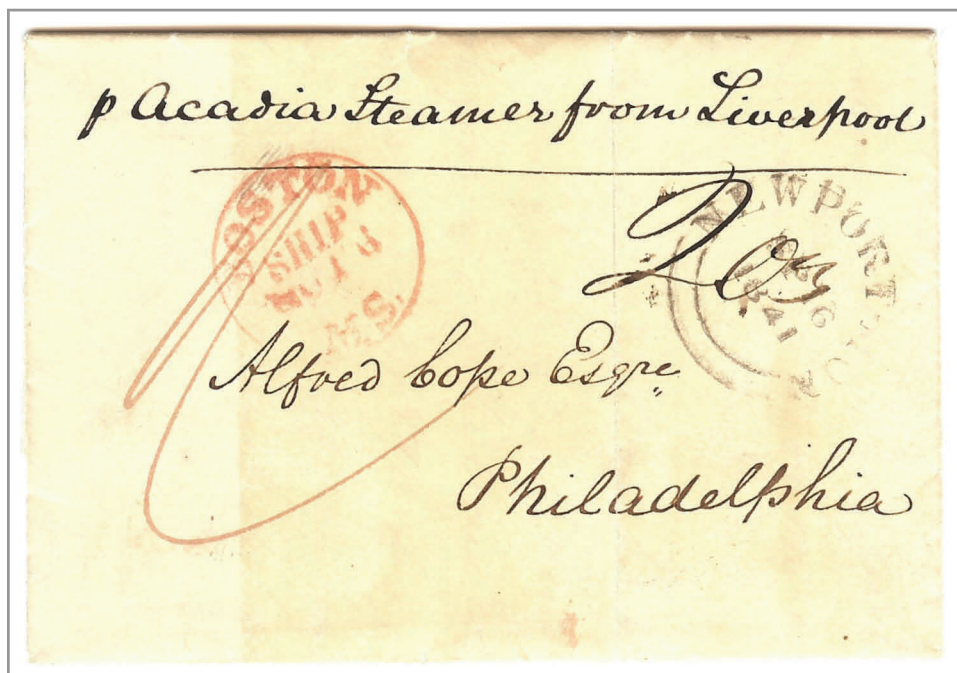 p Acadia Steamer from Liverpool
BOSTON
SHIP
MS.
NEWPORT
1841
Alfred Cope Esqre
Philadelphia